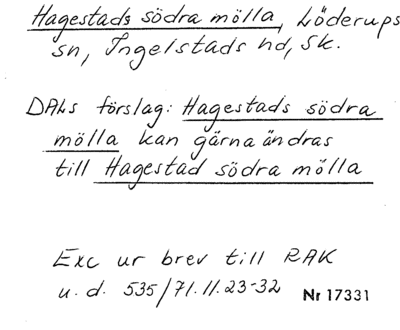 Hagestads södra mölla, Löderups
sn, Ingelstads hd, Sk.
DALs förslag: Hagestads södra
mölla kan gärna ändras
till Hagestad södra mölla
Exc ur brev till RAK
u. d. 535/71.11.23-32 Nr 17331